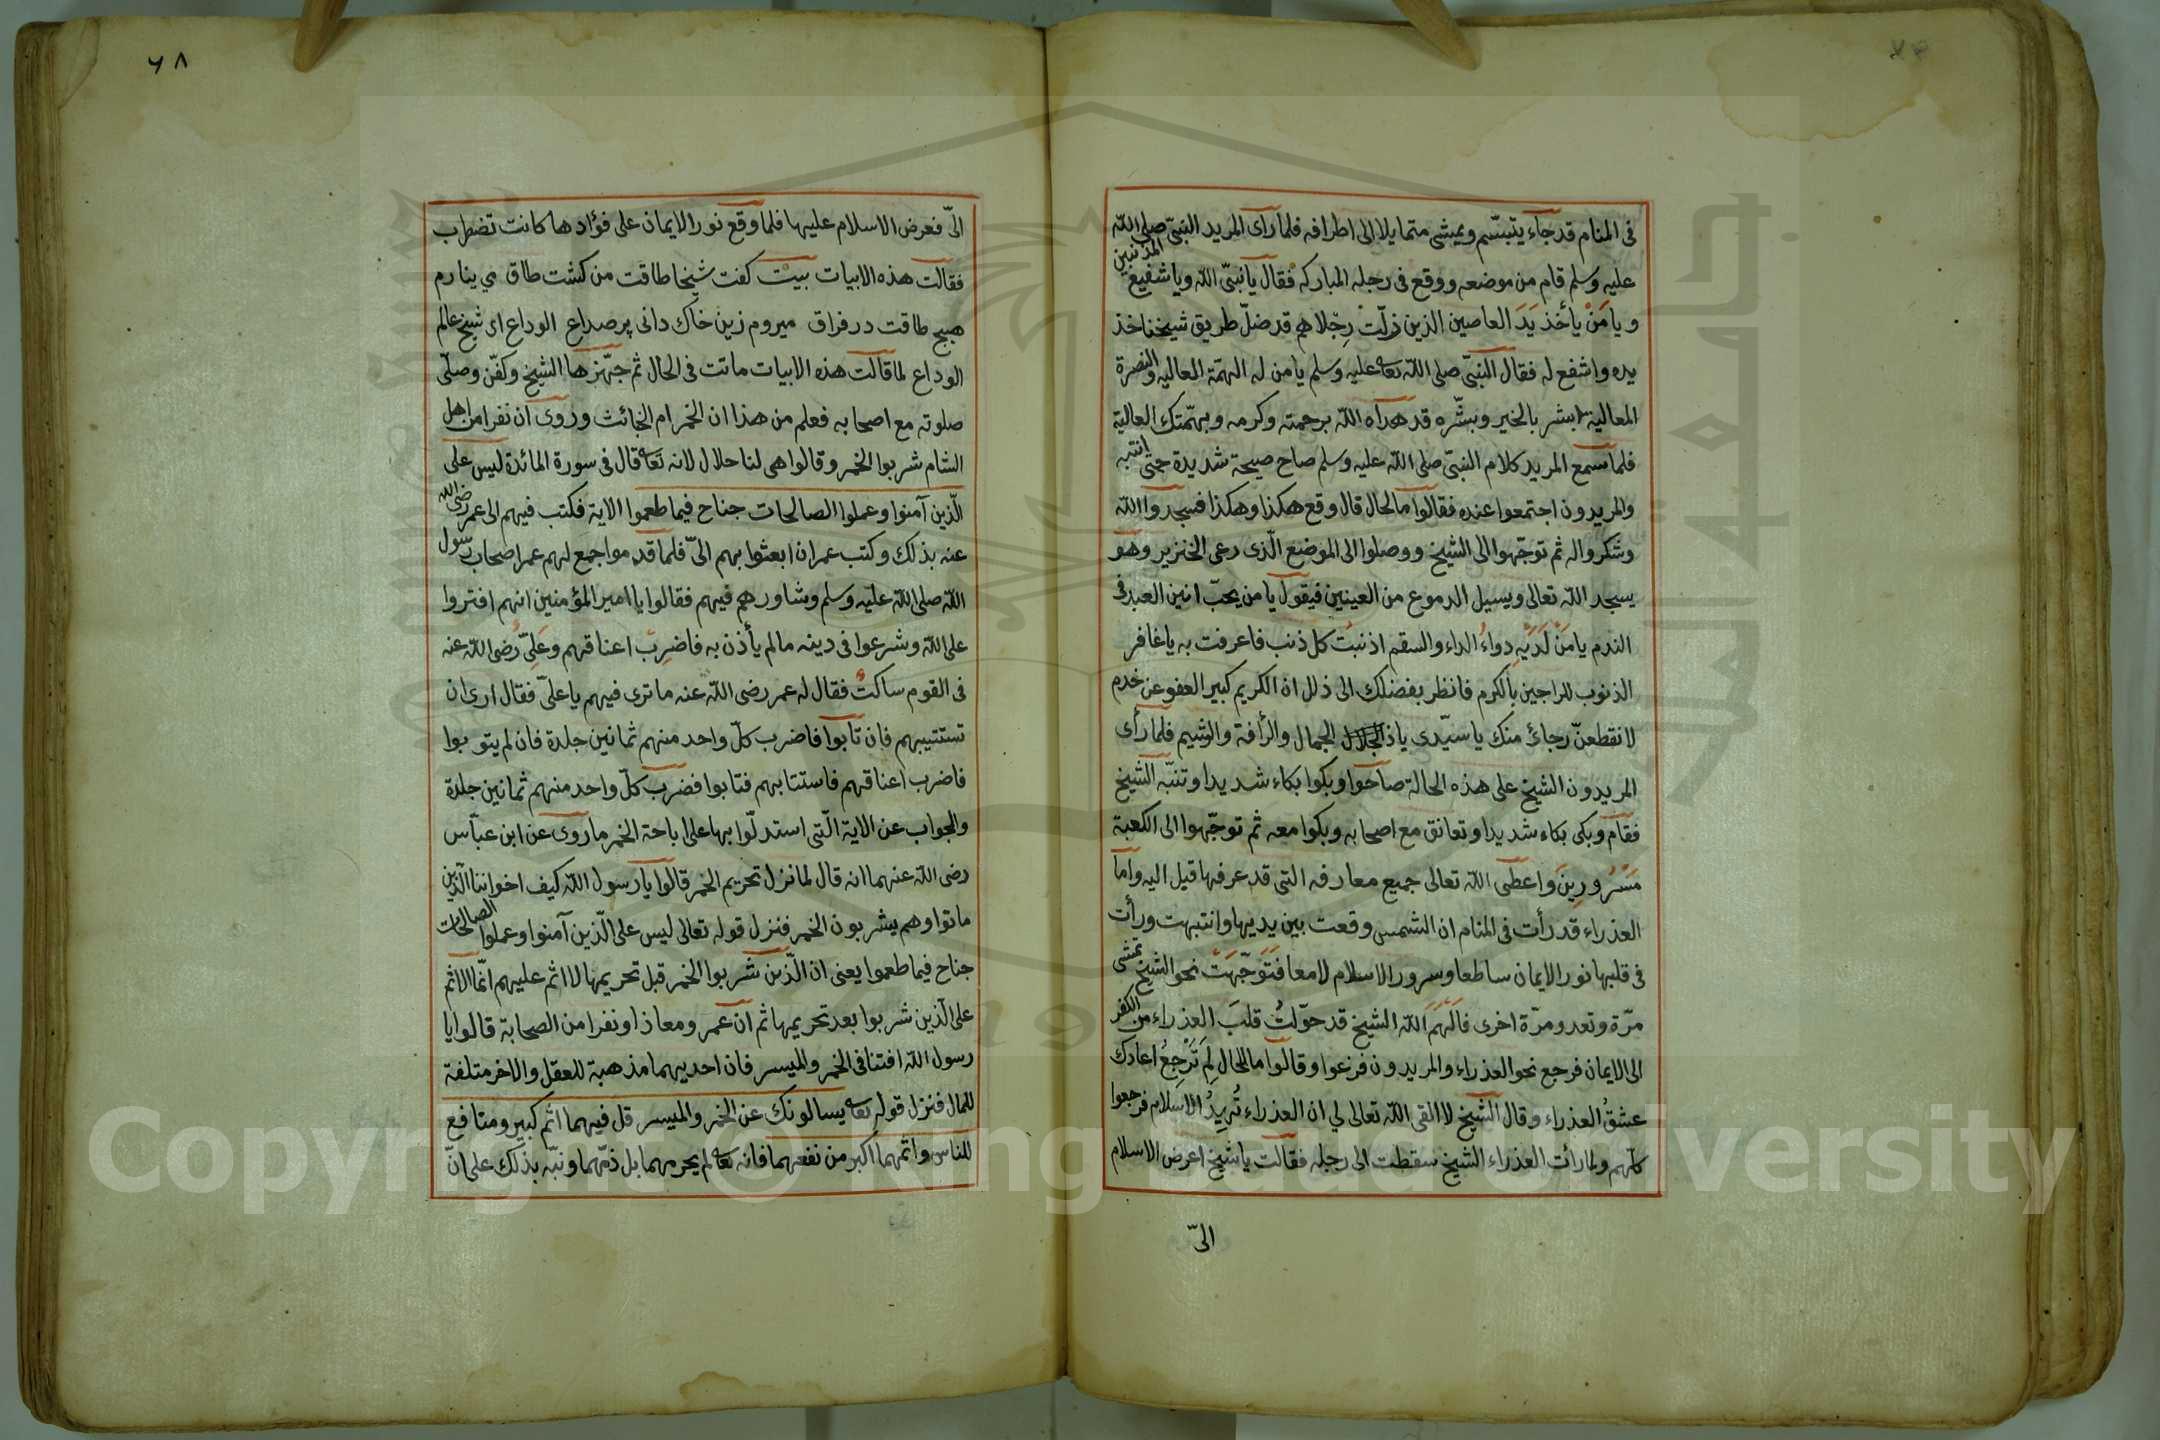 في المنام قد جاء يتبسّم ويمشي متمايلا الى اطرافه فلما رأى المريد النبيّ صلى الله
عليه وسلم قام من موضعه ووقع في رجله المباركه فقال يا نبيّ الله ويا شفيع المذنبين
ويا مَنْ يأخذ يَدَ العاصين الذين ذلّتْ رِجْلاهم قد ضلّ طريق شيخنا خذ
يده واشفع له فقال النبيّ صلى الله تعا عليه وسلم يا من له الهمّة العاليه والنصرة
المعالية ابشر بالخير وبشّره قد هداه الله برحمته وكرمه وبهمّتك العالية
فلما سمع المريد كلام النبيّ صلى الله عليه وسلم صاح صيحة شديدة حتى انتبه
والمريدون اجتمعوا عنده فقالوا ما لحال قال وقع هكذا وهكذا فسجدوا الله
وشكروا له ثم توجّهوا الى الشيخ ووصلوا الى الموضع الّذى رعى الخنزير وهو
يسجد الله تعالى ويسيل الدموع من العينين فيقول يا من يحبّ انين العبد في
الندم يا مَنْ لَدَيْهِ دواءُ الداء والسقم اذنبتُ كل ذنب فاعرفت به يا غافر
الذنوب للراجين بالكرم فانظر بفضلك الى ذلل ان الكريم كبير العفو عن خدم
لا نقطعنّ رجائ منك يا سيّدى ياذ الجمال والرأفة والشيم فلما رأى
المريدون الشيخ على هذه الحالة صاحوا وبكوا بكاء شديدا وتنبّه الشيخ
فقام وبكى بكاء شديدا وتعانق مع اصحابه وبكوا معه ثم توجّهوا الى الكعبة
مَسْرُورِينَ واعطى الله تعالى جميع معارفه التى قد عرفها قبل اليه واما
العذراء قد رأت في المنام ان الشمس وقعت بين يديها وانتبهت ورأت
في قلبها نور الايمان ساطعا وسرور الاسلام لامعا فَتَوَجّهَتْ نحو الشيخ تمشى
مرّة وتعدو مرّة اخرى فَالْهَمَ الله الشيخ قد حوّلتُ قلبَ العذراء من الكفر
الى الايمان فرجع نحو العذراء والمريدون فزعوا وقالوا ما لحال لِمَ تَرْجِعُ اعادك
عشقُ العذراء وقال الشيخ لا القى الله تعالى لي ان العذراء تُرِيدُ الاسلام فرجعوا
كلّهم ولما رأت العذراء الشيخ سقطت الى رجله فقالت يا شيخ اعرض الاسلام
الىّ
٦٨
الىّ فعرض الاسلام عليها فلما وقع نور الايمان على فؤادها كانت تضطرب
فقالت هذه الابيات بيت كفت شيخا طاقت من كشت طاق مي ينارم
هيچ طاقت در فراق ميروم زين خاك دانى پر صداع الوداع اى شيخ عالم
الوداع لما قالت هذه الابيات ماتت في الحال ثم جهّزها الشيخ وكفّن وصلّى
صلوته مع اصحابه فعلم من هذا ان الخمر ام الخبائث وروى ان نفرا من اهل
الشام شربوا الخمر وقالوا هى لنا حلال لانه تعا قال في سورة المائدة ليس على
الّذين آمنوا وعملوا الصالحات جناح فيما طعموا الاية فكتب فيهم الى عمر رضى الله
عنه بذلك وكتب عمر ان ابعثوا بهم الىّ فلما قدموا جمع لهم عمر اصحاب رسول
الله صلى الله عليه وسلم وشاورهم فيهم فقالوا يا امير المؤمنين انهم افتروا
على الله وشرعوا في دينه ما لم يأذن به فاضرِبْ اعناقهم وعَلِىّ رضى الله عنه
في القوم ساكتٌ فقال له عمر رضى الله عنه ما ترى فيهم يا علىّ فقال ارى ان
تستتيبهم فان تابوا فاضرب كلّ واحد منهم ثمانين جلدة فان لم يتوبوا
فاضرب اعناقهم فاستتابهم فتابوا فضرب كلّ واحد منهم ثمانين جلدة
والجواب عن الاية الّتى استدلّوا بها على اباحة الخمر ما روى عن ابن عبّاس
رضى الله عنهما انه قال لما نزل تحريم الخمر قالوا يا رسول الله كيف اخواننا الّذين
ماتوا وهم يشربون الخمر فنزل قوله تعالى ليس على الّذين آمنوا وعملوا الصالحات
جناح فيما طعموا يعنى ان الّذين شربوا الخمر قبل تحريمها لا اثم عليهم انّما الاثم
على الّذين شربوا بعد تحريمها ثم ان عمر ومعاذا ونفرا من الصحابة قالوا يا
رسول الله افتنا في الخمر والميسر فان احديهما مذهبة للعقل والاخر متلفة
للمال فنزل قوله تعا يسالونك عن الخمر والميسر قل فيهما اثم كبير ومنافع
للناس واثمهما اكبر من نفعهما فانه تعا لم يحرمهما بل ذمّهما ونبّه بذلك على انّ
Copyright © King Saud University